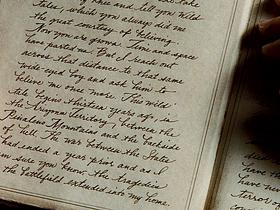 of knee and tell you wild
tales, which you always did me
the great courtesy of believing.
Now you are grown. Time and space
have parted us. But I reach out
across that distance to that same
wide-eyed boy and ask him to
believe me once more. This wild
tale begins thirteen years ago, in
the Arizona Territory, between the
Pinaleno Mountains and the backside
of hell. The war between the States
had ended a year prior and as I
am sure you know, the tragedies
the battlefield extended into my home.
have
terror
a
have